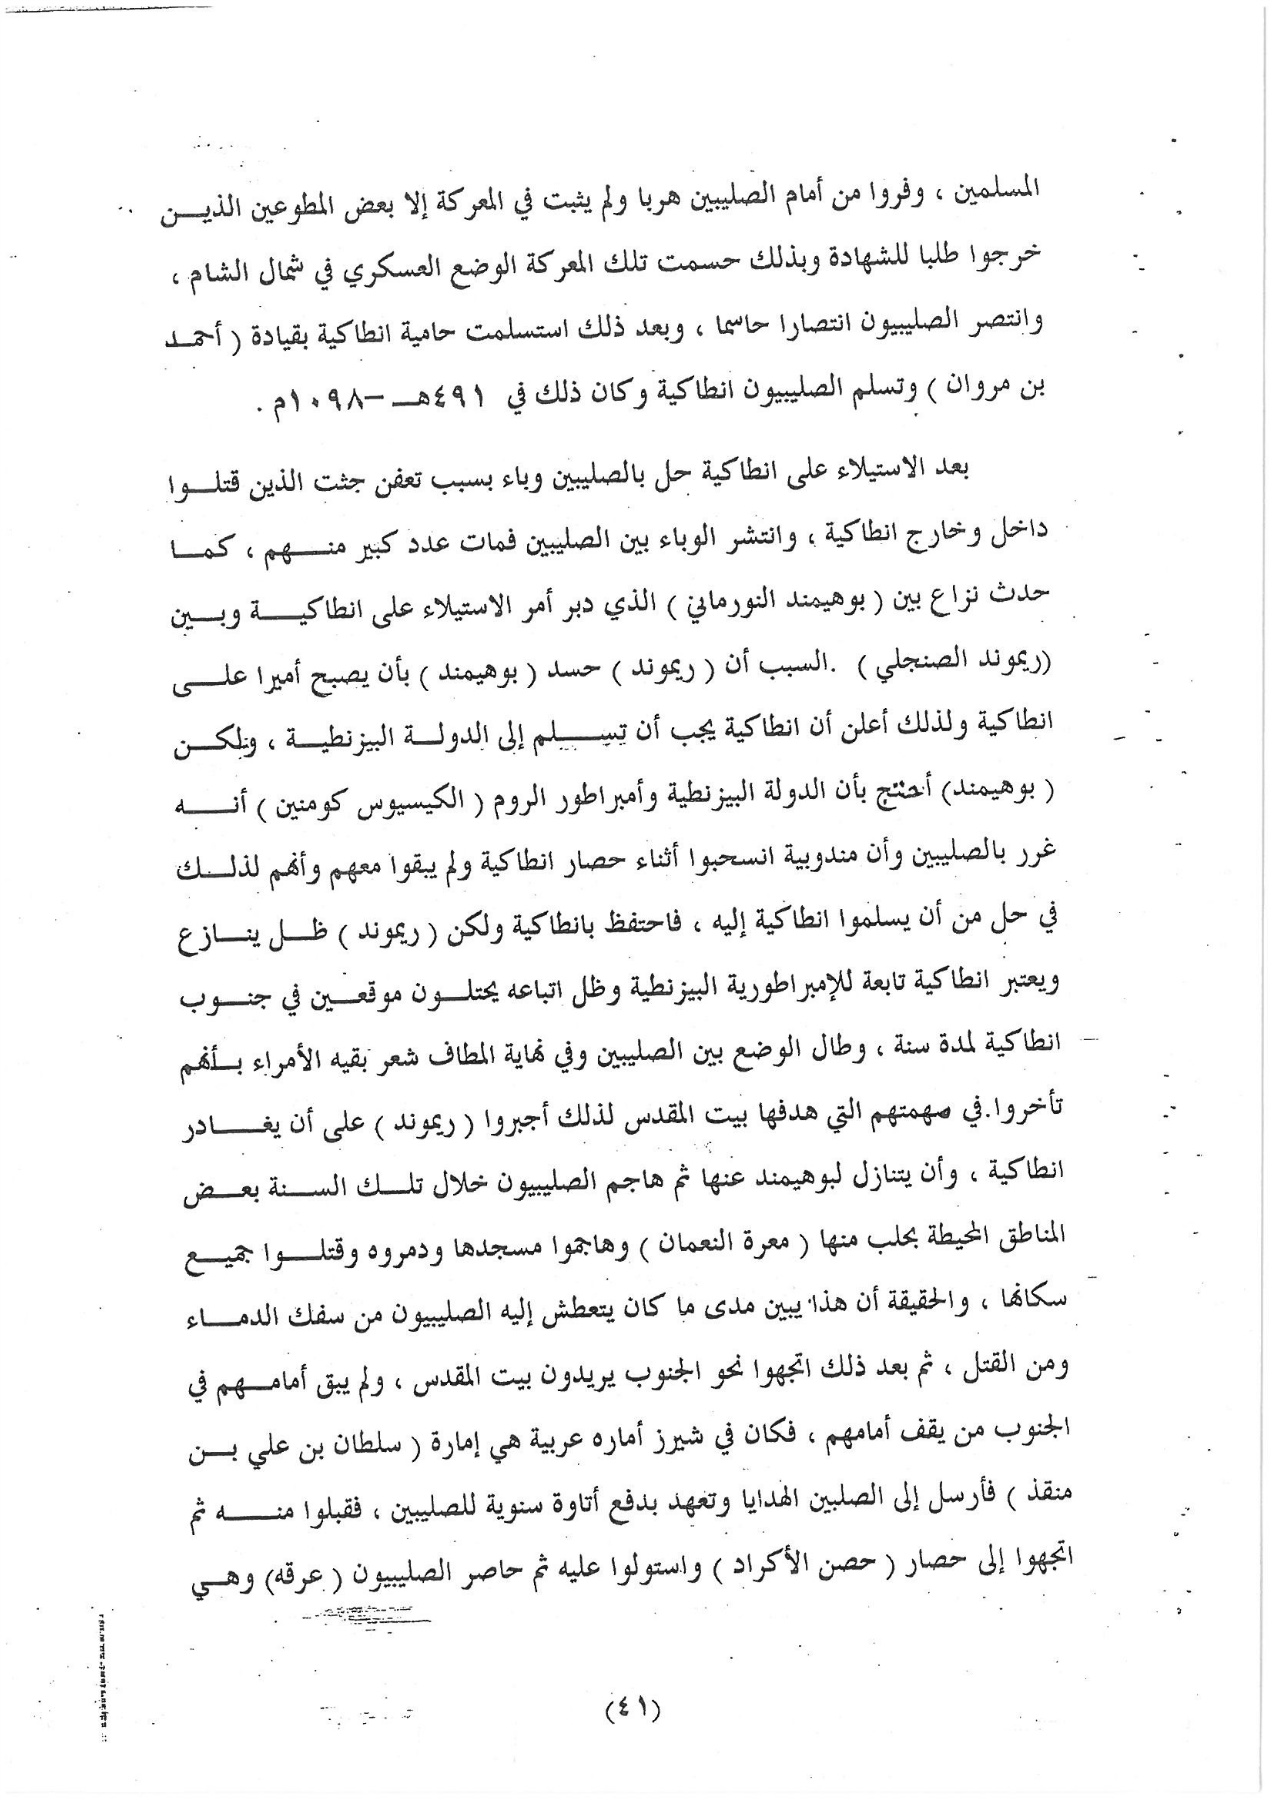 المسلمين ، وفروا من أمام الصليبين هربا ولم يثبت في المعركة إلا بعض المطوعين الذيـــن
خرجوا طلبا للشهادة وبذلك حسمت تلك المعركة الوضع العسكري في شمال الشام ،
وانتصر الصليبيون انتصارا حاسما ، وبعد ذلك استسلمت حامية انطاكية بقيادة ( أحمـد
بن مروان ) وتسلم الصليبيون انطاكية وكان ذلك في ٤٩١هـــ –١٠٩٨م .
بعد الاستيلاء على انطاكية حل بالصليبين وباء بسبب تعفن جثت الذين قتلـــوا
داخل وخارج انطاكية ، وانتشر الوباء بين الصليبين فمات عدد كبير منـــهم ، كمـــا
حدث نزاع بين ( بوهيمند النورماني ) الذي دبر أمر الاستيلاء على انطاكيـــة وبـــين
(ريموند الصنجلي ) .السبب أن ( ريموند ) حسد ( بوهيمند ) بأن يصبح أميرا علـــى
انطاكية ولذلك أعلن أن انطاكية يجب أن تســـلم إلى الدولـــة البيزنطيـــة ، ولكـــن
( بوهيمند) أحتج بأن الدولة البيزنطية وأمبراطور الروم ( الكيسيوس كومنين ) أنـــه
غرر بالصليبين وأن مندوبية انسحبوا أثناء حصار انطاكية ولم يبقوا معهم وأنهم لذلـــك
في حل من أن يسلموا انطاكية إليه ، فاحتفظ بانطاكية ولكن ( ريموند ) ظـــل ينـــازع
ويعتبر انطاكية تابعة للإمبراطورية البيزنطية وظل اتباعه يحتلـــون موقعـــين في جنـــوب
انطاكية لمدة سنة ، وطال الوضع بين الصليبين وفي نهاية المطاف شعر بقيه الأمراء بـــأنهم
تأخروا.في مهمتهم التي هدفها بيت المقدس لذلك أجبروا ( ريموند ) على أن يغـــادر
انطاكية ، وأن يتنازل لبوهيمند عنها ثم هاجم الصليبيون خلال تلـــك الســـنة بعـــض
المناطق المحيطة بحلب منها ( معرة النعمان ) وهاجموا مسجدها ودمروه وقتلـــوا جميـــع
سكانها ، والحقيقة أن هذا يبين مدى ما كان يتعطش إليه الصليبيون من سفك الدمـــاء
ومن القتل ، ثم بعد ذلك اتجهوا نحو الجنوب يريدون بيت المقدس ، ولم يبق أمامـــهم في
الجنوب من يقف أمامهم ، فكان في شيرز أماره عربية هي إمارة ( سلطان بن علي بـــن
منقذ ) فأرسل إلى الصلبين الهدايا وتعهد بدفع أتاوة سنوية للصليبين ، فقبلوا منـــه ثم
اتجهوا إلى حصار ( حصن الأكراد ) واستولوا عليه ثم حاصر الصليبيون ( عرقه) وهـــي
(٤١)